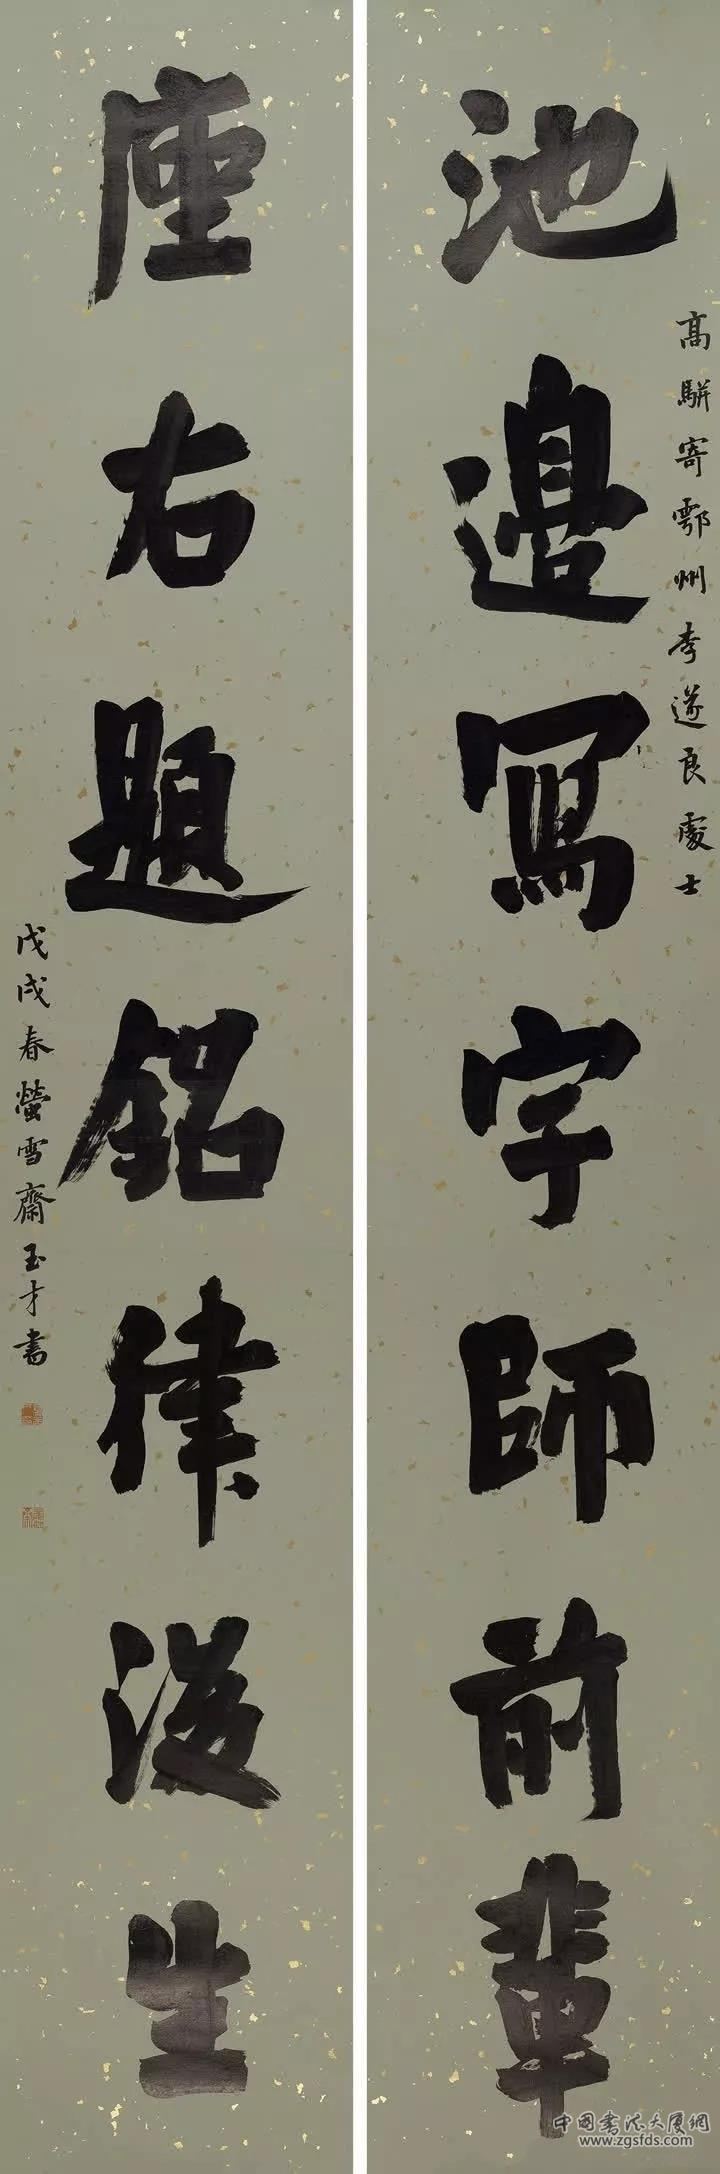 池邊寫字師前輩
高駢寄鄂州李遂良處士
座右題銘律後生
戊戌春螢雪齋玉才書
中國書法大廈網
www.zgsfds.com